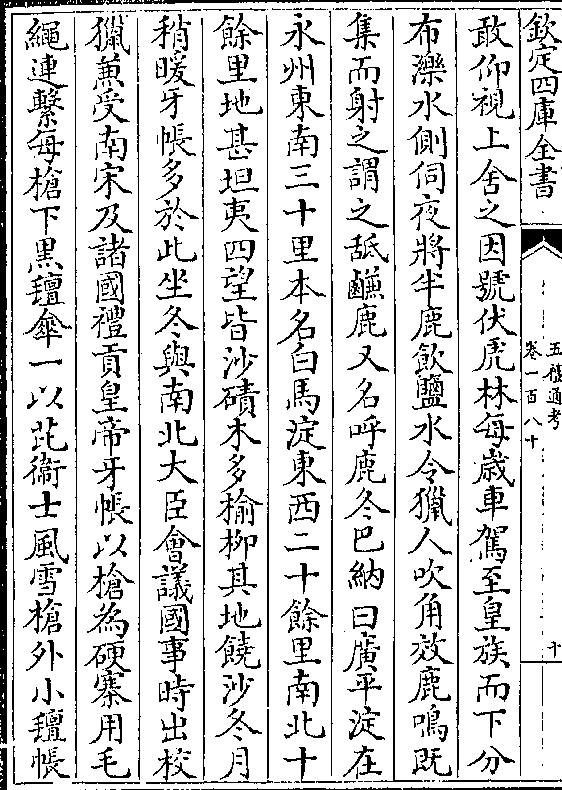 欽定四庫全書
五禮通考
卷一百八十
十
敢仰視上舍之因號伏虎林每歲車駕至皇族而下分
布濼水側伺夜將半鹿飲鹽水令獵人吹角效鹿鳴既
集而射之謂之舐鹻鹿又名呼鹿冬巴納曰廣平淀在
永州東南三十里本名白馬淀東西二十餘里南北十
餘里地甚坦夷四望皆沙磧木多榆栁其地饒沙冬月
稍暖牙帳多於此坐冬與南北大臣會議國事時出校
獵兼受南宋及諸國禮貢皇帝牙帳以槍為硬寨用毛
繩連繫每槍下黒氊傘一以芘衞士風雪槍外小氊帳